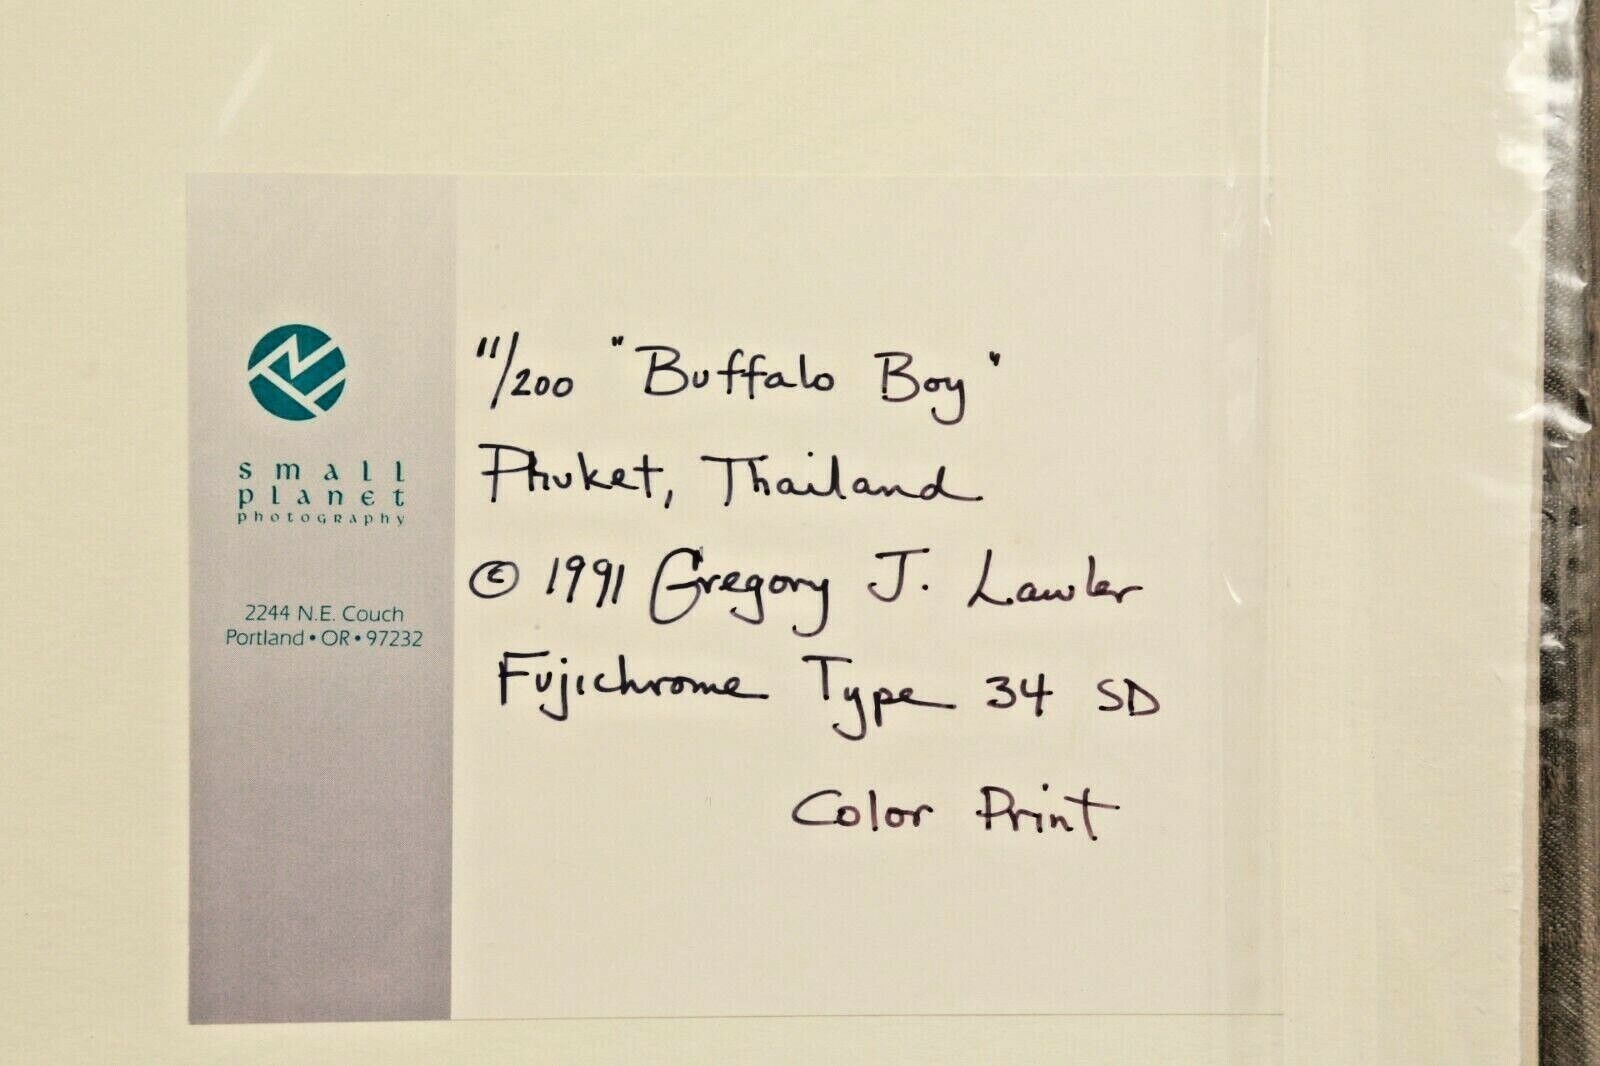 small
planet
photography
2244 N.E. Couch
Portland • OR • 97232
11/200 "Buffalo Boy"
Phuket, Thailand
© 1991 Gregory J. Lawler
Fujichrome Type 34 SD
Color Print